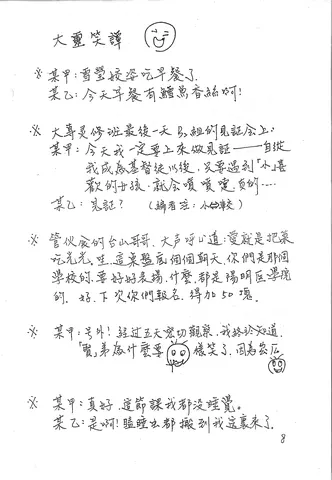 大靈笑譚
※ 某甲：雪瑩姣姿吃早餐了.
某乙：今天早餐有鱷魚香絲啊！
※ 大專靈修班最後一天 B組的見証会上：
某甲：今天我一定要上來做見証——自從
我成為基督徒以後，只要遇到「小」喜
歡的女孩，就会噴噴嚏，真的……
某乙：見証？
※ 管伙食的台山哥哥，大声呼心道：愛就是把菜
吃光光。哇，這桌盤底個個朝天，你們是那個
學校的，要好好表揚，什麼，都是陽明医學院
的，好，下次你們報名，得加50塊。
※ 某甲：号外！經过五天密切觀察，我終於知道，
「賢弟為什麼要 樣笑了，因為
※ 某甲：真好，這節課我都没睡覺。
某乙：是啊！瞌睡虫都搬到我這裏來了.
8